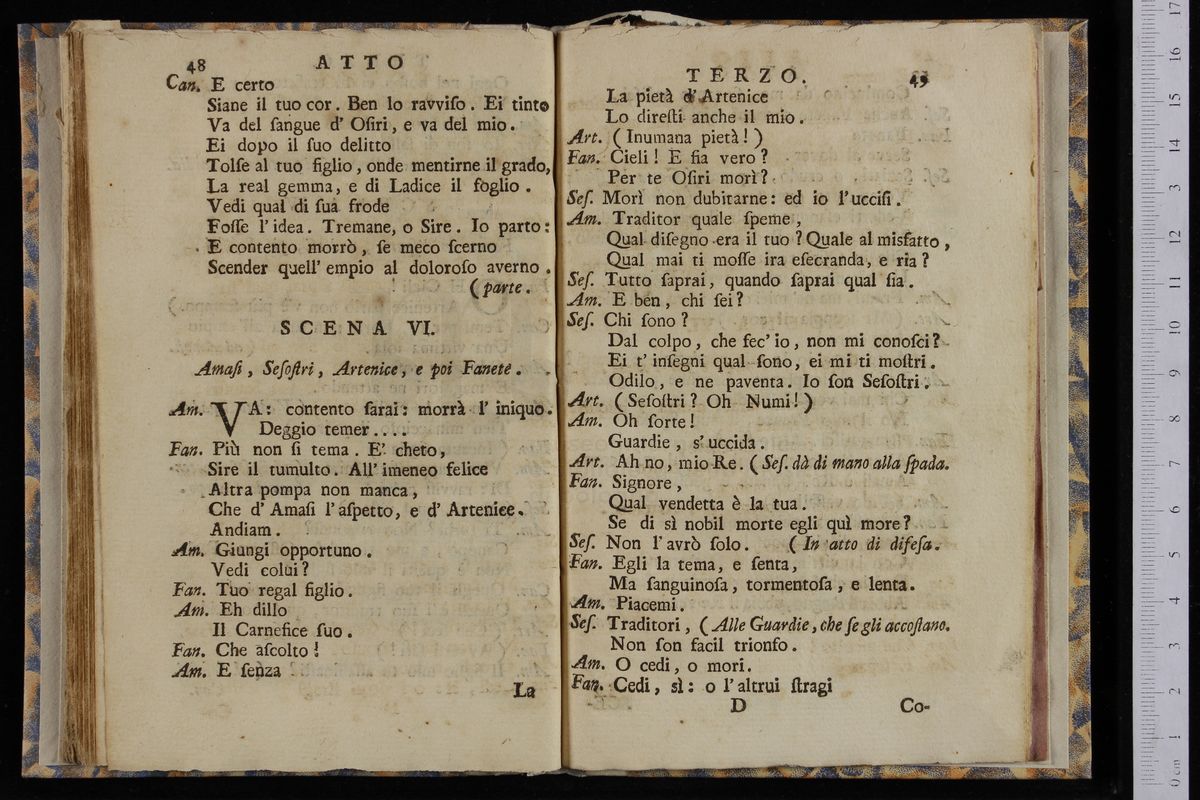 48 ATTO
Can. E certo
Siane il tuo cor. Ben lo ravviſo. Ei tinto
Va del ſangue d' Oſiri, e va del mio.
Ei dopo il ſuo delitto
Tolſe al tuo figlio, onde mentirne il grado,
La real gemma, e di Ladice il foglio.
Vedi qual di ſua frode
Foſſe l'idea. Tremane, o Sire. Io parto:
E contento morrò, ſe meco ſcerno
Scender quell' empio al doloroſo averno.
(parte.
SCENA VI.
Amaſi, Seſoſtri, Artenice, e poi Fanete.
Am. VA: contento ſarai: morrà l' iniquo.
Deggio temer....
Fan. Più non ſi tema. E' cheto,
Sire il tumulto. All' imeneo felice
Altra pompa non manca,
Che d' Amaſi l'aſpetto, e d' Artenice.
Andiam.
Am. Giungi opportuno.
Vedi colui?
Fan. Tuo regal figlio.
Am. Eh dillo
Il Carnefice ſuo.
Fan. Che aſcolto!
Am. E ſenza
La
TERZO. 49
La pietà d'Artenice
Lo direſti anche il mio.
Art. (Inumana pietà!)
Fan. Cieli! E fia vero?
Per te Oſiri morì?
Seſ. Morì non dubitarne: ed io l'ucciſi.
Am. Traditor quale ſpeme,
Qual diſegno era il tuo? Quale al misfatto,
Qual mai ti moſſe ira eſecranda, e ria?
Seſ. Tutto ſaprai, quando ſaprai qual ſia.
Am. E ben, chi ſei?
Seſ. Chi ſono?
Dal colpo, che fec' io, non mi conoſci?
Ei t' inſegni qual ſono, ei mi ti moſtri.
Odilo, e ne paventa. Io ſon Seſoſtri.
Art. (Seſoſtri? Oh Numi!)
Am. Oh ſorte!
Guardie, s' uccida.
Art. Ah no, mio Re. (Seſ. dà di mano alla ſpada.
Fan. Signore,
Qual vendetta è la tua.
Se di sì nobil morte egli quì more?
Seſ. Non l'avrò ſolo. (In atto di difeſa.
Fan. Egli la tema, e ſenta,
Ma ſanguinoſa, tormentoſa, e lenta.
Am. Piacemi.
Seſ. Traditori, (Alle Guardie, che ſe gli accoſtano.
Non ſon facil trionfo.
Am. O cedi, o mori.
Fan. Cedi, sì: o l'altrui ſtragi
D Co-